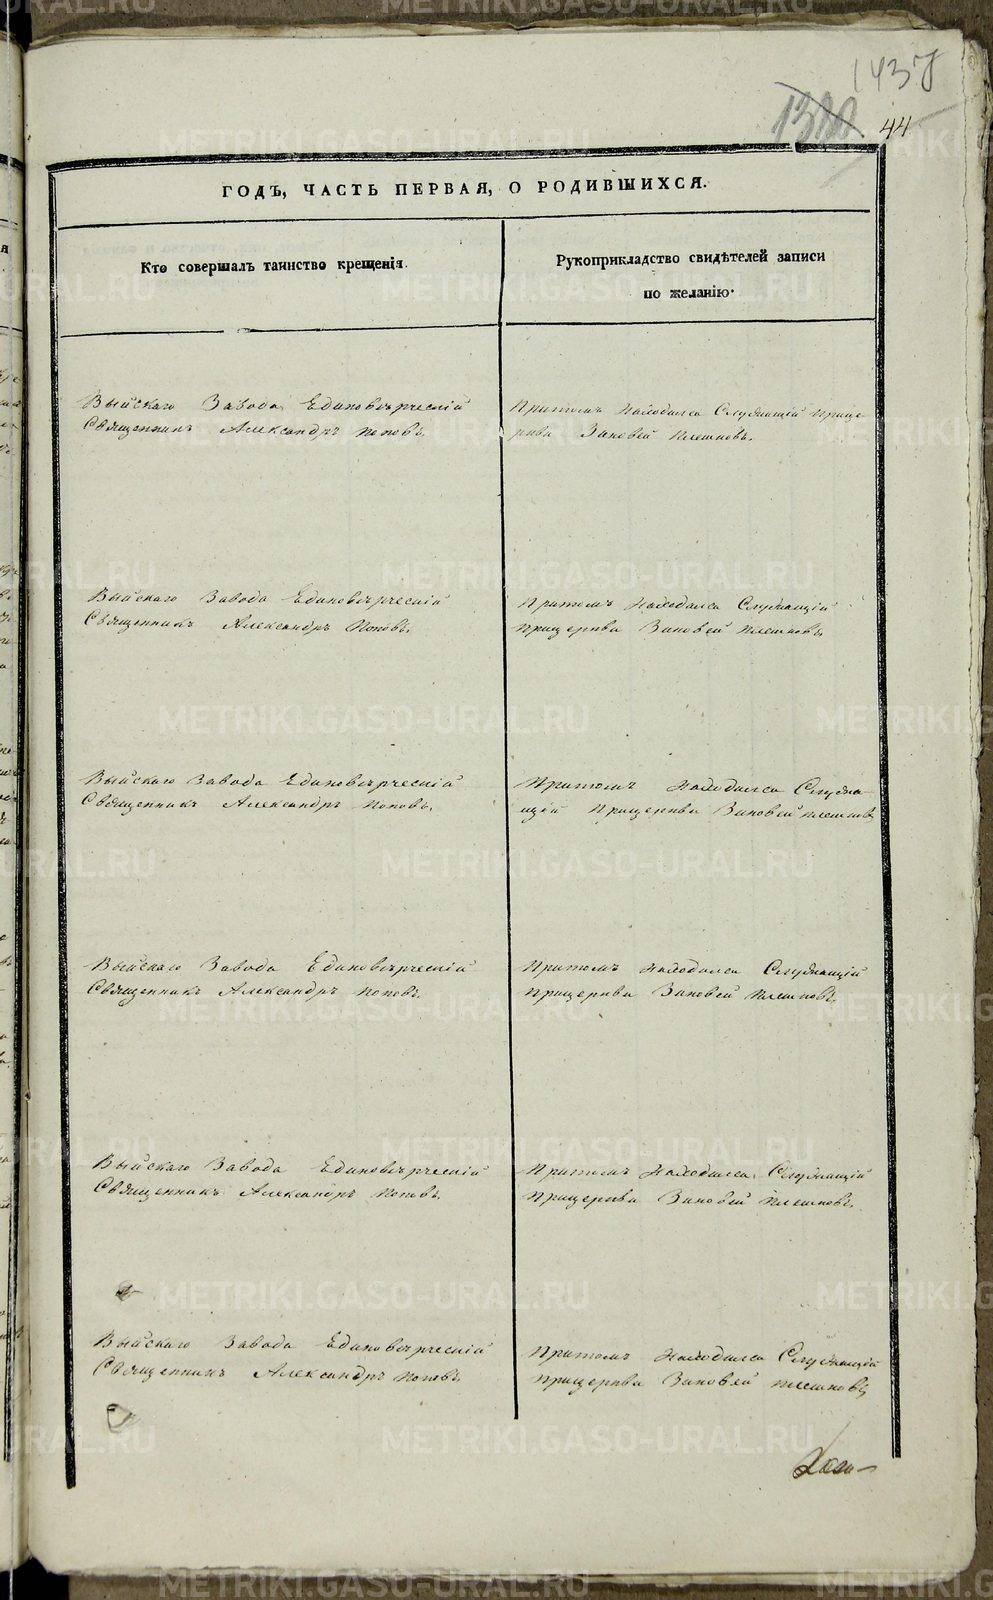 1437
1380
44
ГОДЪ, ЧАСТЬ ПЕРВАЯ, О РОДИВШИХСЯ.
Кто совершалъ таинство крещенія.
Рукоприкладство свидѣтелей записи
по желанію.
Выйскаго Завода Единовѣрческій
Священникъ Александръ Поповъ.
Притомъ находился Служащій прице-
ркви Зиновей Плешковъ.
Выйскаго Завода Единовѣрческій
Священникъ Александръ Поповъ.
Притомъ находился Служащій
прицеркви Зиновей Плешковъ.
Выйскаго Завода Единовѣрческій
Священникъ Александръ Поповъ.
Притомъ находился Служа-
щій прицеркви Зиновей Плешковъ
Выйскаго Завода Единовѣрческій
Священникъ Александръ Поповъ.
Притомъ находился Служащій
прицеркви Зиновей Плешковъ.
Выйскаго Завода Единовѣрческій
Священникъ Александръ Поповъ.
Притомъ находился Служащій
прицеркви Зиновей Плешковъ.
Выйскаго Завода Единовѣрческій
Священникъ Александръ Поповъ.
Притомъ находился Служащій
прицеркви Зиновей Плешковъ
METRIKI.GASO-URAL.RU